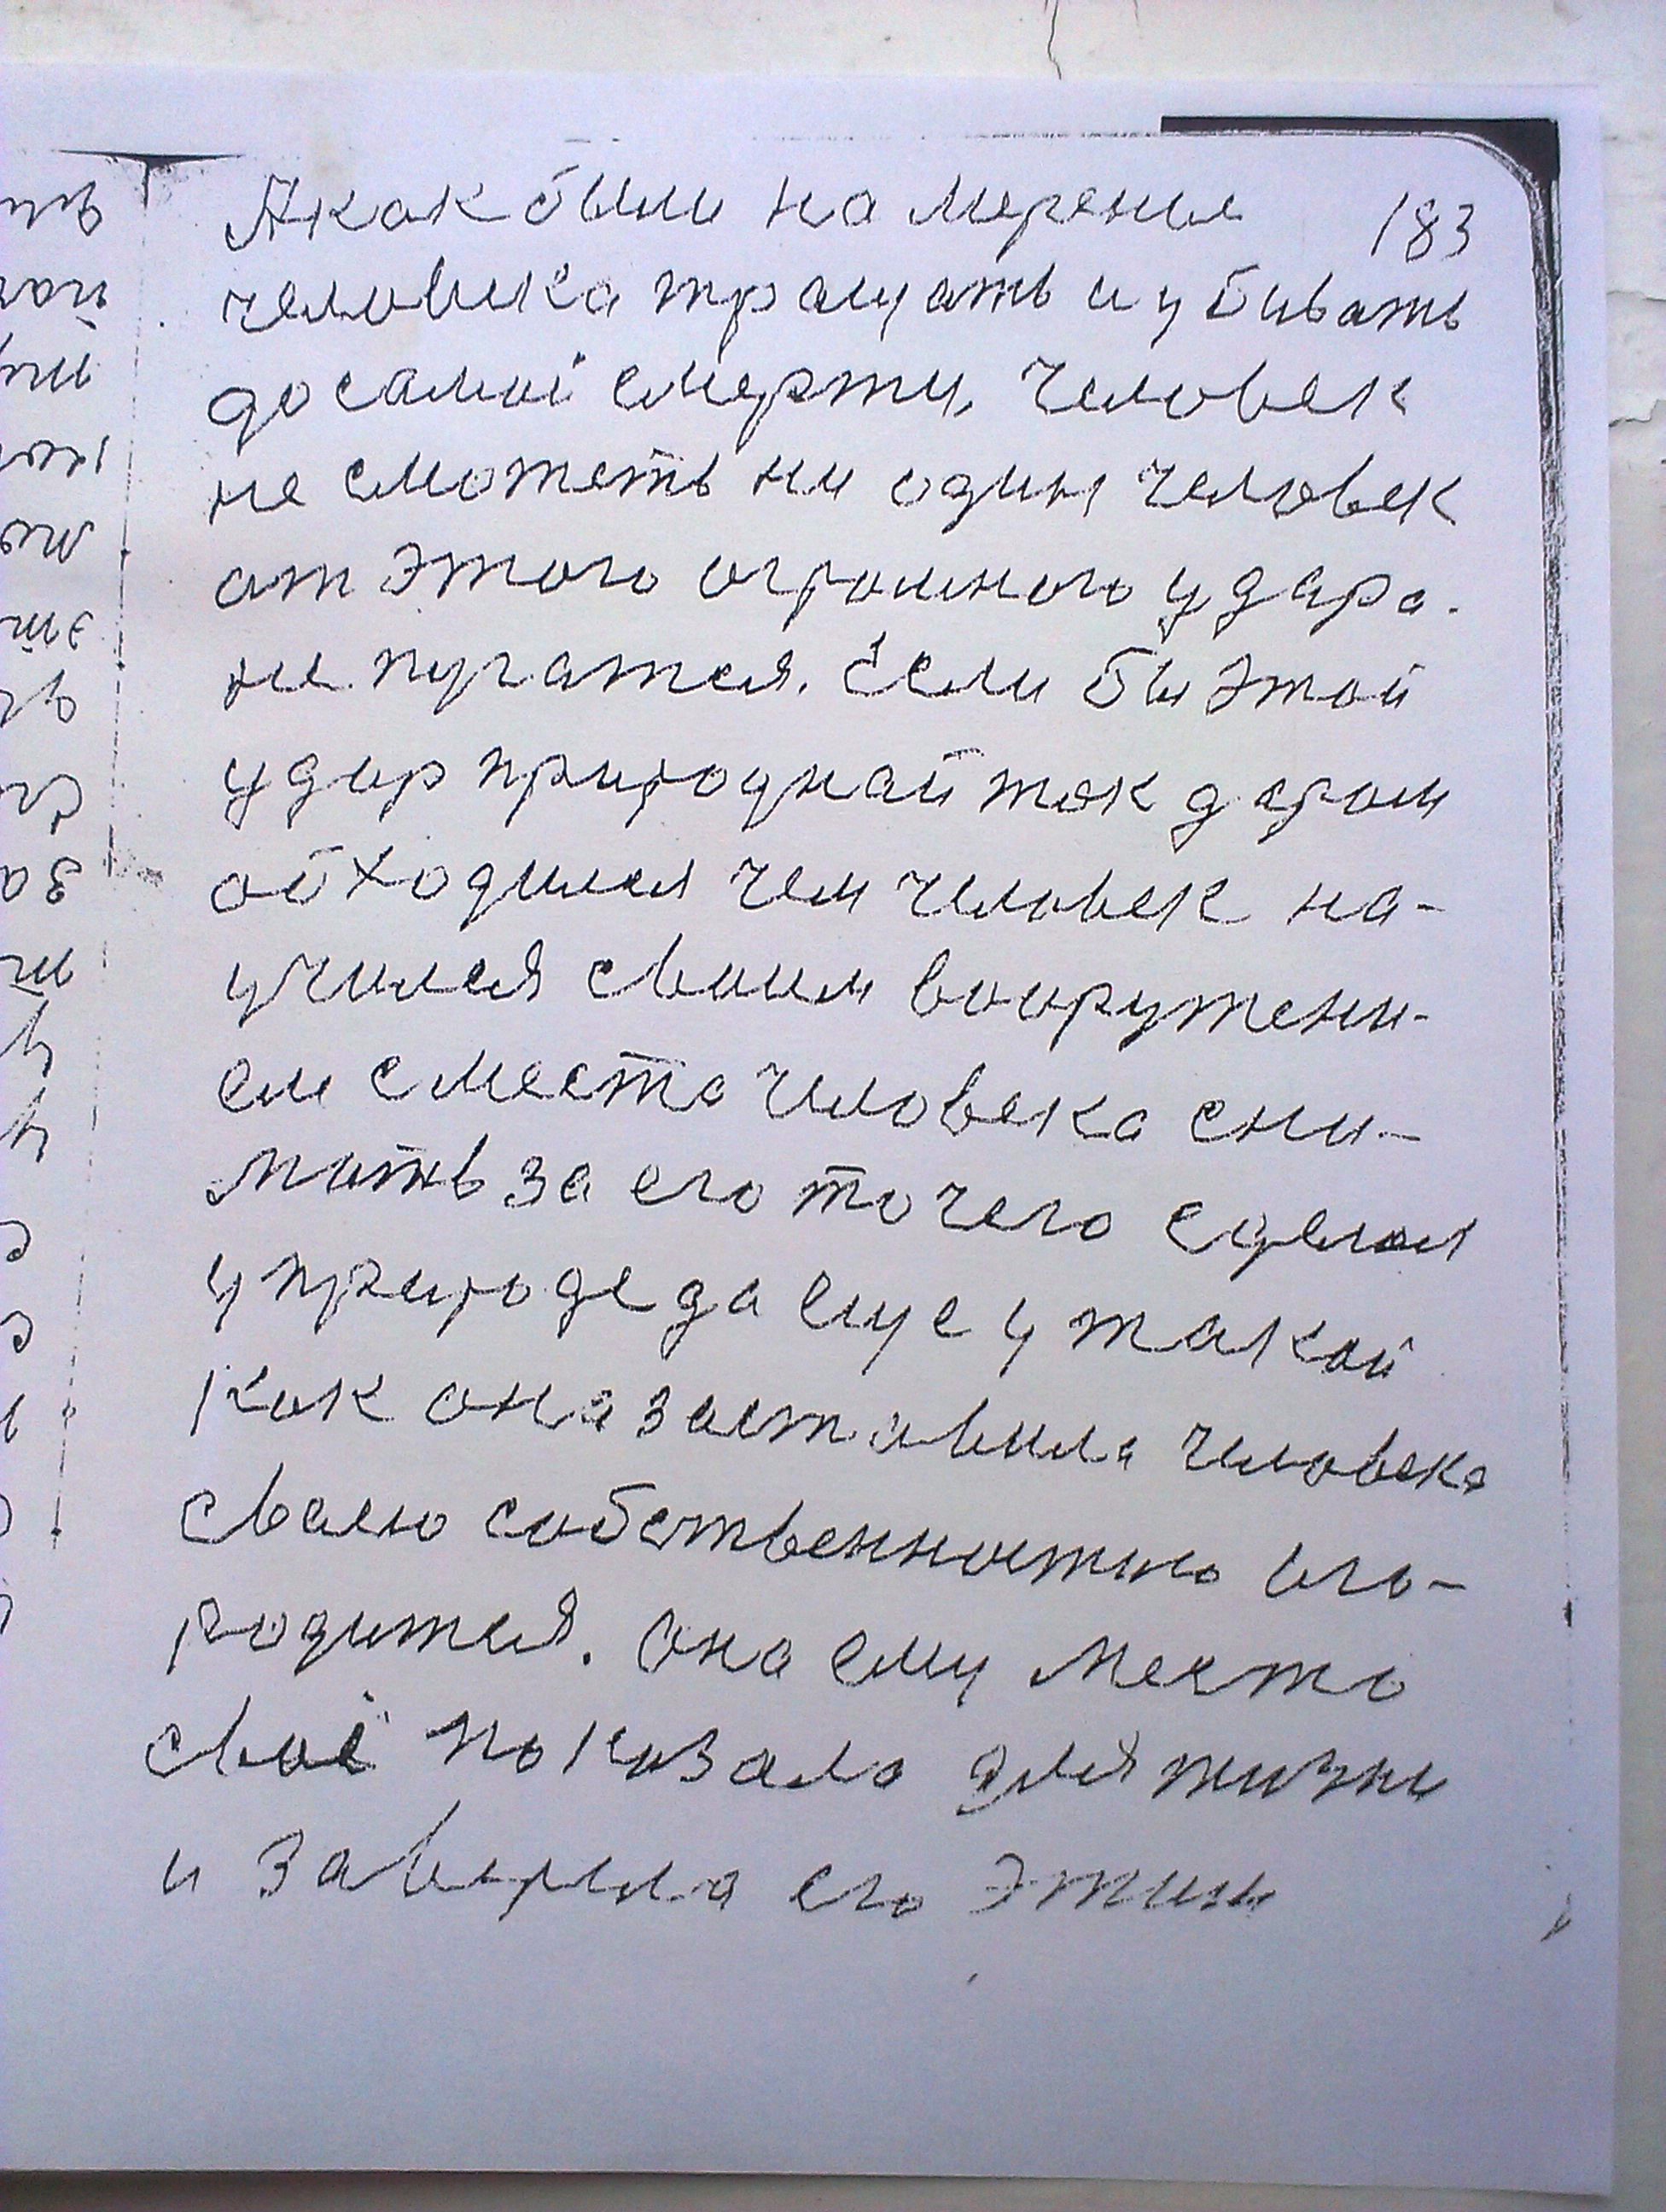 183
А как были на мерение
человека тращать и убивать
до самой смерти, человек
не сможеть ни один человек
от этого огромного удара.
не пугатся. Если бы этой
удар природнай так даром
обходился чем человек на-
учился своим вооружени-
ем с места человека сни-
мать за его то чего сделал
у природе да еще у такой
как она заставила человека
своею собственностью ого-
родится. Она ему место
своё показала для жизни
и заверила его этим